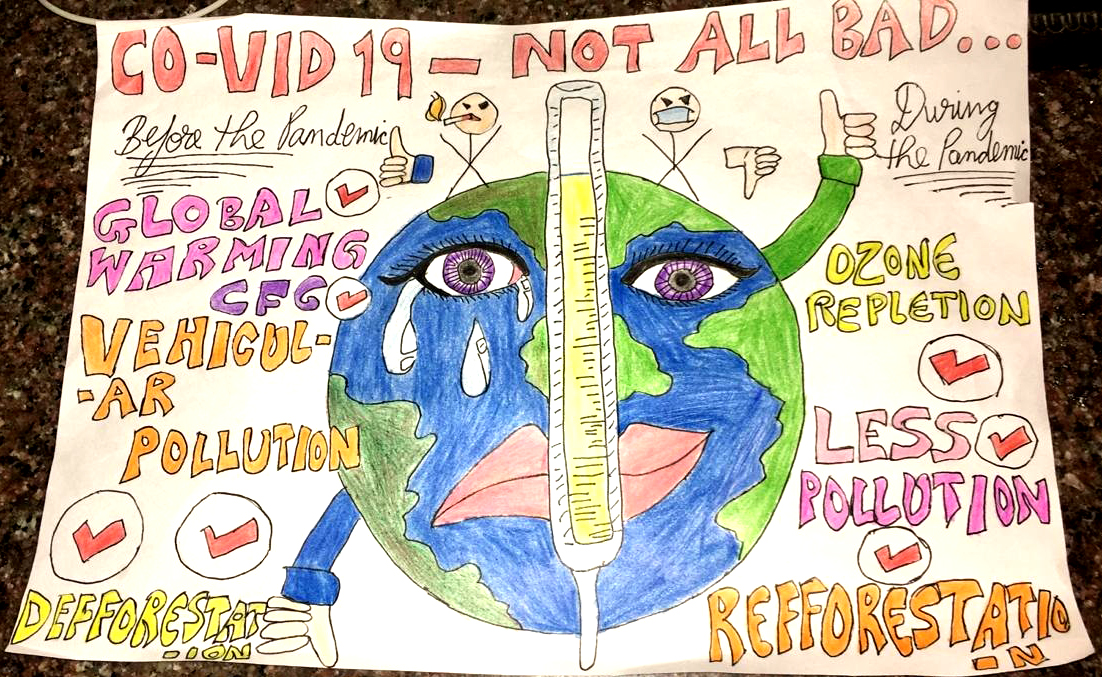 CO-VID 19 - NOT ALL BAD...
Before the Pandemic
GLOBAL
WARMING
CFG
VEHICUL-
-AR
POLLUTION
DEFFORESTAT
-ION
During
the Pandemic
OZONE
REPLETION
LESS
POLLUTION
REFFORESTATIO
-N